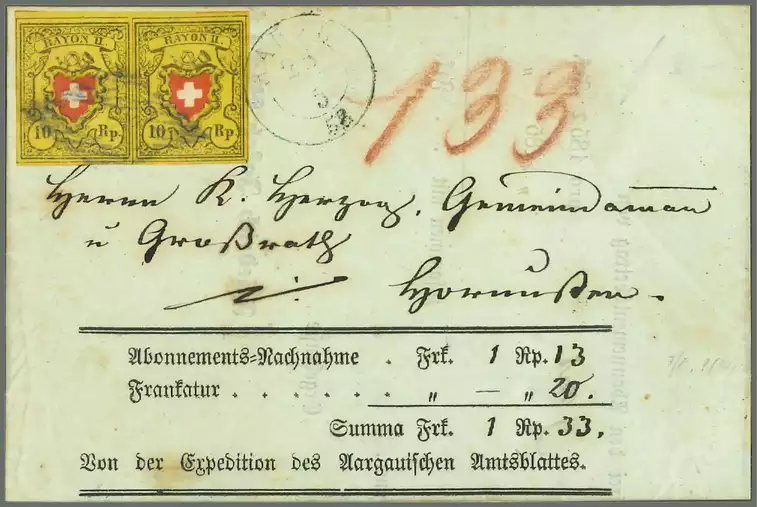 RAYON II RAYON II
10 Rp. 10 Rp.
133
Herrn K. Herzog, Gemeindaman
u Großrath
Hornußen.
Abonnements-Nachnahme . Frk. 1 Rp. 13
Frankatur . . . . . . „ — „ 20.
Summa Frk. 1 Rp. 33.
Von der Expedition des Aargauischen Amtsblattes.